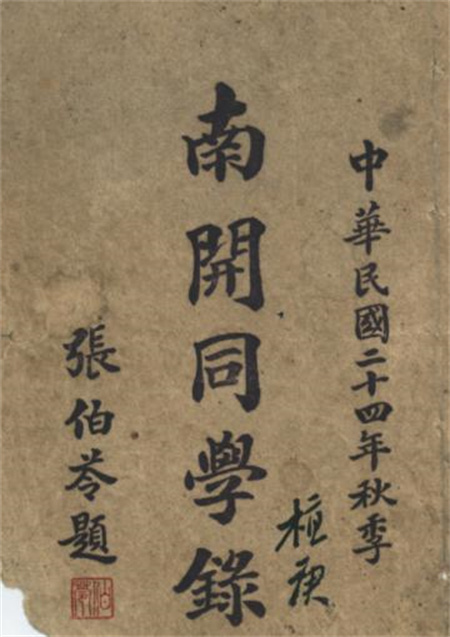 中華民國二十四年秋季
南開同學錄
張伯苓題